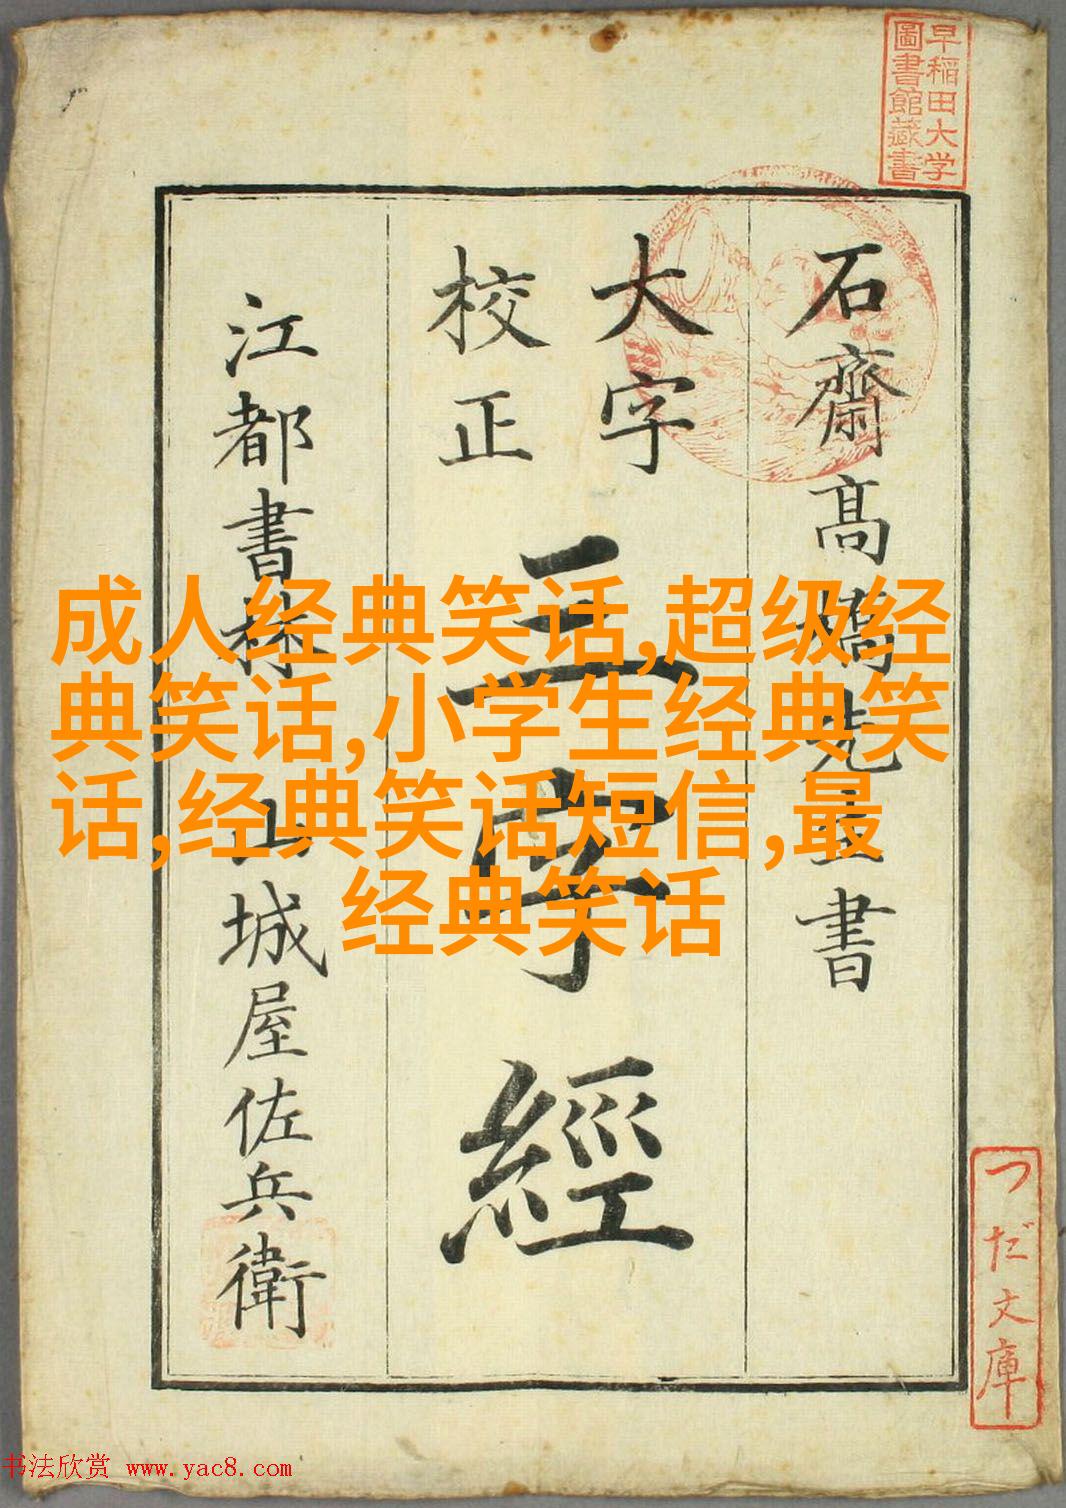 早稲田大学
圖書館藏書
石齋髙橋先生書
大字
校正
三字經
江都書林 山城屋佐兵衛
つだ文庫
成人经典笑话,超级经
典笑话,小学生经典笑
话,经典笑话短信,最
经典笑话
书法欣赏 www.yac8.com